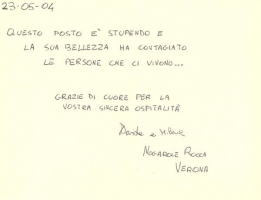 23-05-04
QUESTO POSTO E' STUPENDO E
LA SUA BELLEZZA HA CONTAGIATO
LE PERSONE CHE CI VIVONO...
GRAZIE DI CUORE PER LA
VOSTRA SINCERA OSPITALITÀ
Davide e
NOGAROLE ROCCA
VERONA